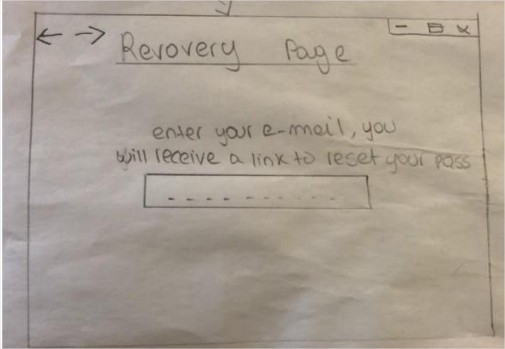 Revovery Page
enter your e-mail, you
will receive a link to reset your pass